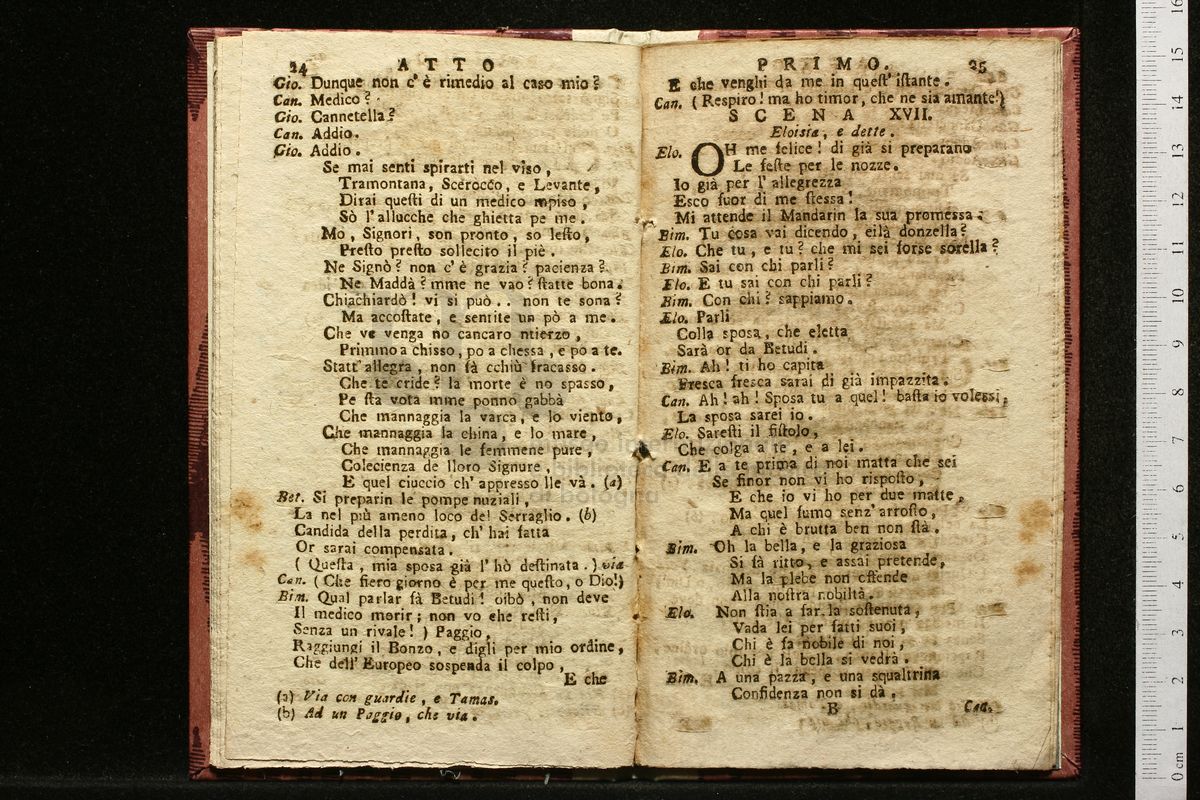 24 ATTO
Gio. Dunque non c'è rimedio al caso mio?
Can. Medico?
Gio. Cannetella?
Can. Addio.
Gio. Addio.
Se mai senti spirarti nel viso,
Tramontana, Scerocco, e Levante,
Dirai questi di un medico mpiso,
Sò l'allucche che ghietta pe me.
Mo, Signori, son pronto, so lesto,
Presto presto sollecito il piè.
Ne Signò? non c'è grazia? pacienza?
Ne Maddà? mme ne vao? statte bona.
Chiachiardò! vi si può.. non te sona?
Ma accostate, e sentite un pò a me.
Che ve venga no cancaro ntierzo,
Primmo a chisso, po a chessa, e po a te.
Statt'allegra, non fà cchiù fracasso.
Che te cride? la morte è no spasso,
Pe sta vota mme ponno gabbà
Che mannaggia la varca, e lo viento,
Che mannaggia la china, e lo mare,
Che mannaggia le femmene pure,
Colecienza de lloro Signure,
E quel ciuccio ch'appresso lle và. (a)
Bet. Si preparin le pompe nuziali,
La nel più ameno loco del Serraglio. (b)
Candida della perdita, ch'hai fatta
Or sarai compensata.
( Questa, mia sposa già l'hò destinata. ) via
Can. (Che fiero giorno è per me questo, o Dio!)
Bim. Qual parlar fà Betudi! oibò, non deve
Il medico morir; non vo che resti,
Senza un rivale! ) Paggio,
Raggiungi il Bonzo, e digli per mio ordine,
Che dell'Europeo sospenda il colpo,
E che
(a) Via con guardie, e Tamas.
(b) Ad un Paggio, che via.
PRIMO. 25
E che venghi da me in quest'istante.
Can. (Respiro! ma ho timor, che ne sia amante!)
SCENA XVII.
Eloisia, e dette.
Elo. OH me felice! di già si preparano
Le feste per le nozze.
Io già per l'allegrezza
Esco fuor di me stessa!
Mi attende il Mandarin la sua promessa.
Bim. Tu cosa vai dicendo, eilà donzella?
Elo. Che tu, e tu? che mi sei forse sorella?
Bim. Sai con chi parli?
Elo. E tu sai con chi parli?
Bim. Con chi? sappiamo.
Elo. Parli
Colla sposa, che eletta
Sarà or da Betudi.
Bim. Ah! ti ho capita
Fresca fresca sarai di già impazzita.
Can. Ah! ah! Sposa tu a quel! basta io volessi,
La sposa sarei io.
Elo. Saresti il fistolo,
Che colga a te, e a lei.
Can. E a te prima di noi matta che sei
Se finor non vi ho risposto,
E che io vi ho per due matte,
Ma quel fumo senz'arrosto,
A chi è brutta ben non stà.
Bim. Oh la bella, e la graziosa
Si fà ritto, e assai pretende,
Ma la plebe non offende
Alla nostra nobiltà.
Elo. Non stia a far la sostenuta,
Vada lei per fatti suoi,
Chi è fa nobile di noi,
Chi è la bella si vedrà.
Bim. A una pazza, e una squaltrina
Confidenza non si dà.
B Can.